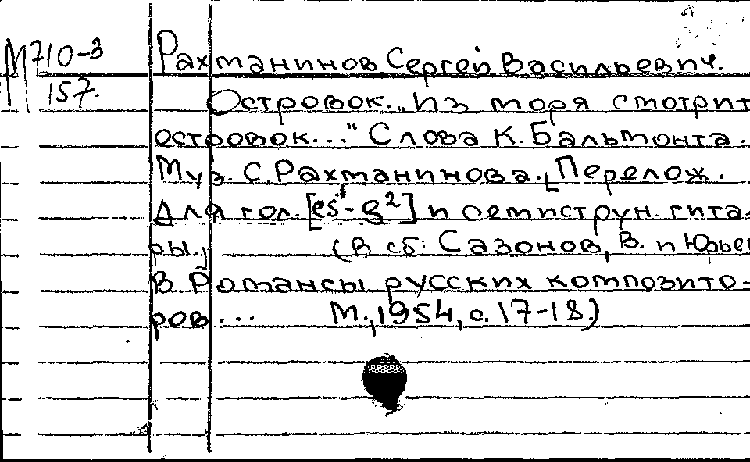 М710-3 Рахманинов Сергей Васильевич.
157. Островок. „Из моря смотрит
островок..." Слова К. Бальмонта.
Муз. С. Рахманинова. [Перелож.
для гол. [es¹-g²] и семиструн. гита-
ры.] (В сб: Сазонов, В. и Юрьев
В. Романсы русских композито-
ров... М., 1954, с. 17-18)